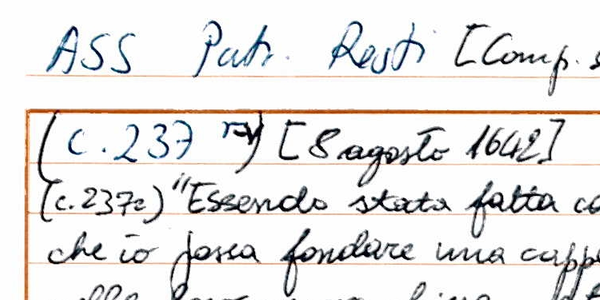 ASS Patr. Resti [Comp. s
(c. 237 rv) [8 agosto 1642]
(c. 237r) "Essendo stata fatta co
che io possa fondare una cappe